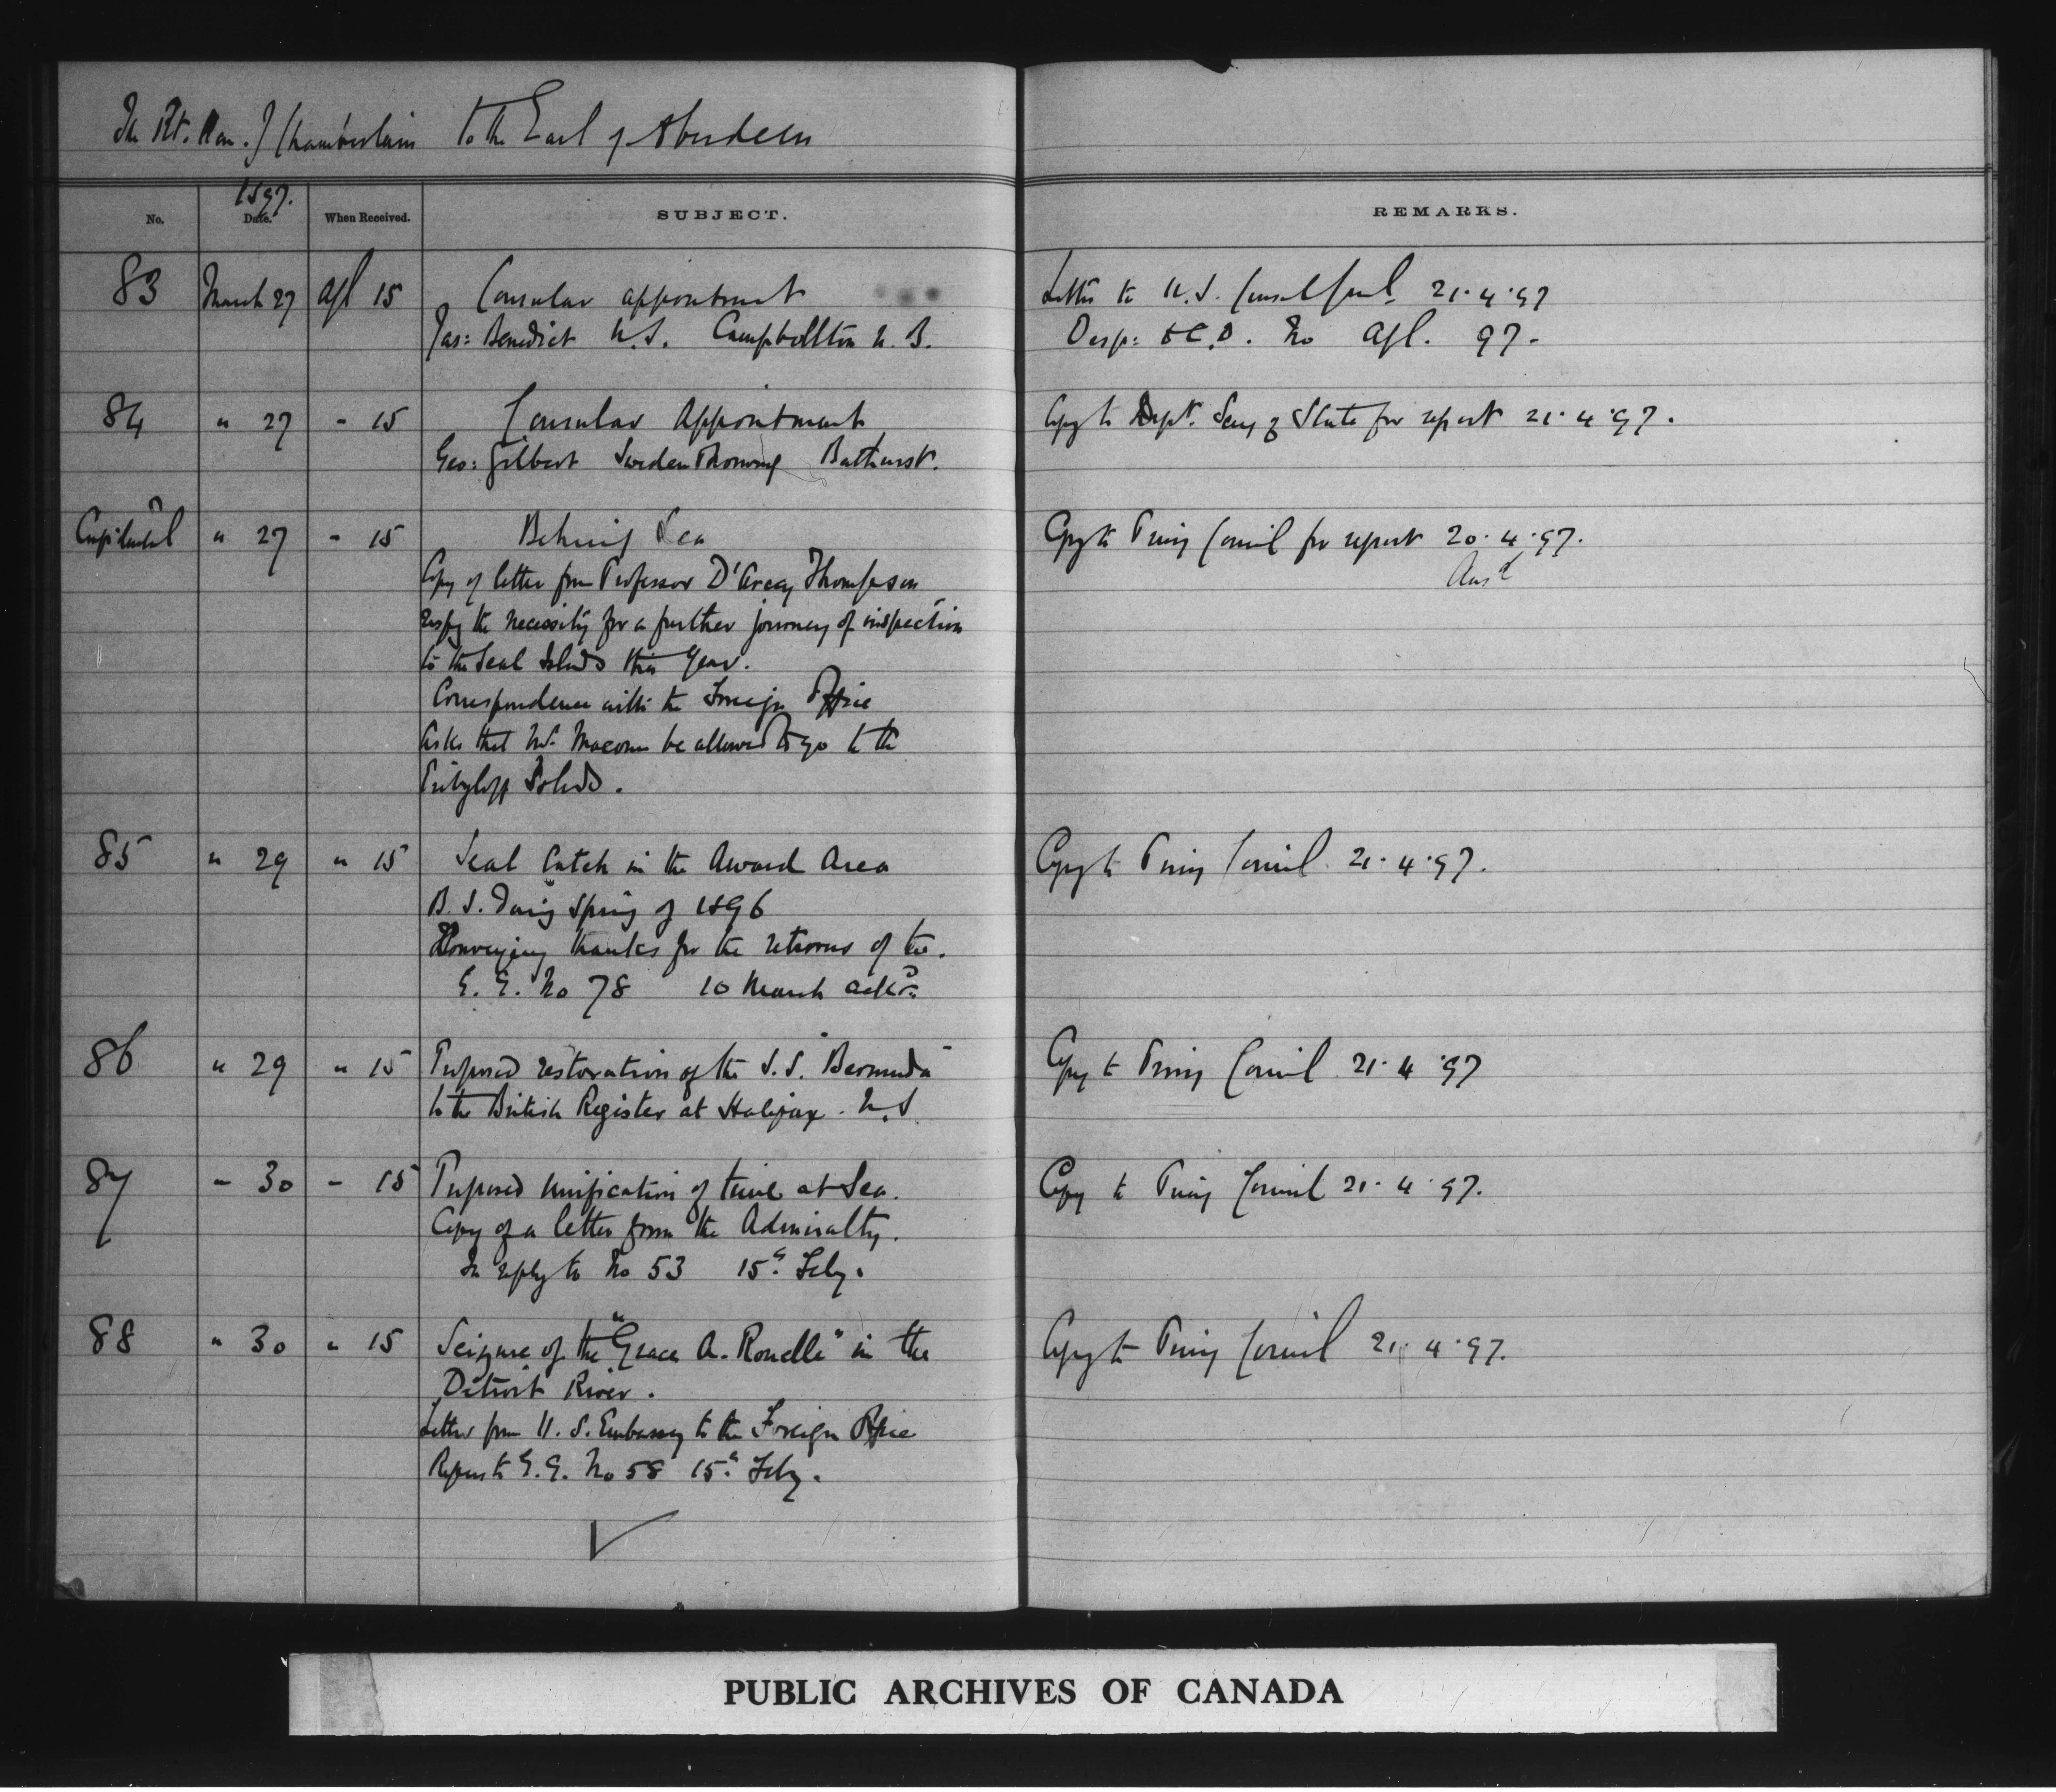 The Rt. Hon. J Chamberlain to the Earl of Aberdeen
1897.
No. Date. When Received. SUBJECT. REMARKS.
83 March 27 Apl 15 Consular appointment Letter to U.S. Consul Genl. 21.4.97
Jas: Benedict U.S. Campbellton N.B. Desp: No Apl. 97.
84 " 27 " 15 Consular Appointment Copy to Dept. Secy of State for report 21.4.97.
Geo: Gilbert Sweden & Norway Bathurst.
Confidential " 27 " 15 Behring Sea Copy to Privy Council for report 20.4.97.
Copy of letter from Professor D'Arcy Thompson Ansd
respg the necessity for a further journey of inspection
to the Seal Islds this year.
Correspondence with the Foreign Office
Asks that Mr. Macoun be allowed to go to the
Pribyloff Islds.
85 " 29 " 15 Seal Catch in the Award Area Copy to Privy Council 21.4.97.
B.S. during Spring of 1896
Conveying thanks for the returns of the.
G.G. No 78 10 March ackg
86 " 29 " 15 Proposed restoration of the S.S. "Bermuda" Copy to Privy Council 21.4.97
to the British Register at Halifax. N.S.
87 " 30 " 15 Proposed Unification of time at Sea. Copy to Privy Council 21.4.97.
Copy of a letter from the Admiralty.
In reply to No 53 15th Feby.
88 " 30 " 15 Seizure of the "Grace A. Ronelle" in the Copy to Privy Council 21.4.97.
Detroit River.
Letter from U.S. Embassy to the Foreign Office
Refers to G.G. No 58 15th Feby.
PUBLIC ARCHIVES OF CANADA